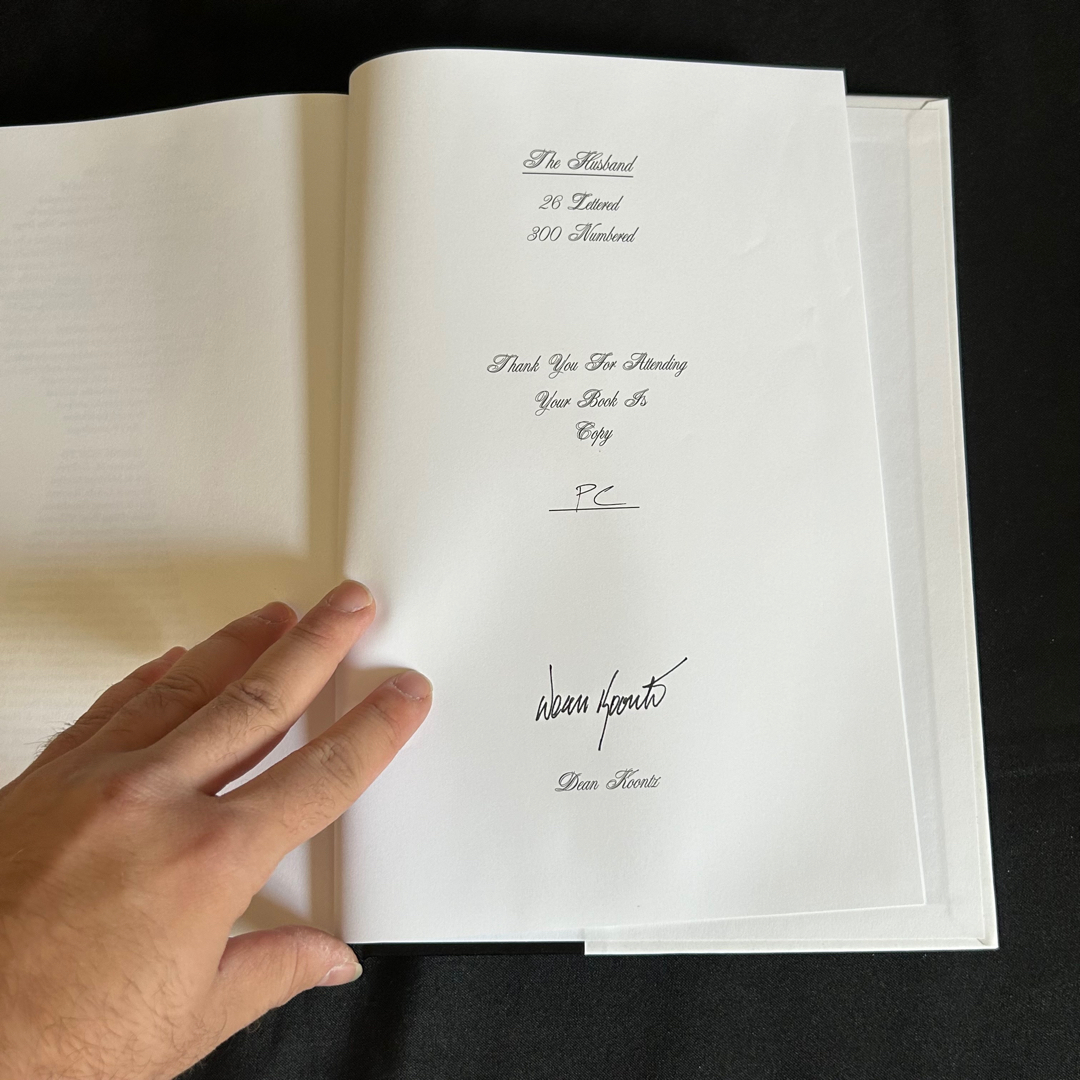 The Husband
26 Lettered
300 Numbered
Thank You For Attending
Your Book Is
Copy
PC
Dean Koontz
Dean Koontz